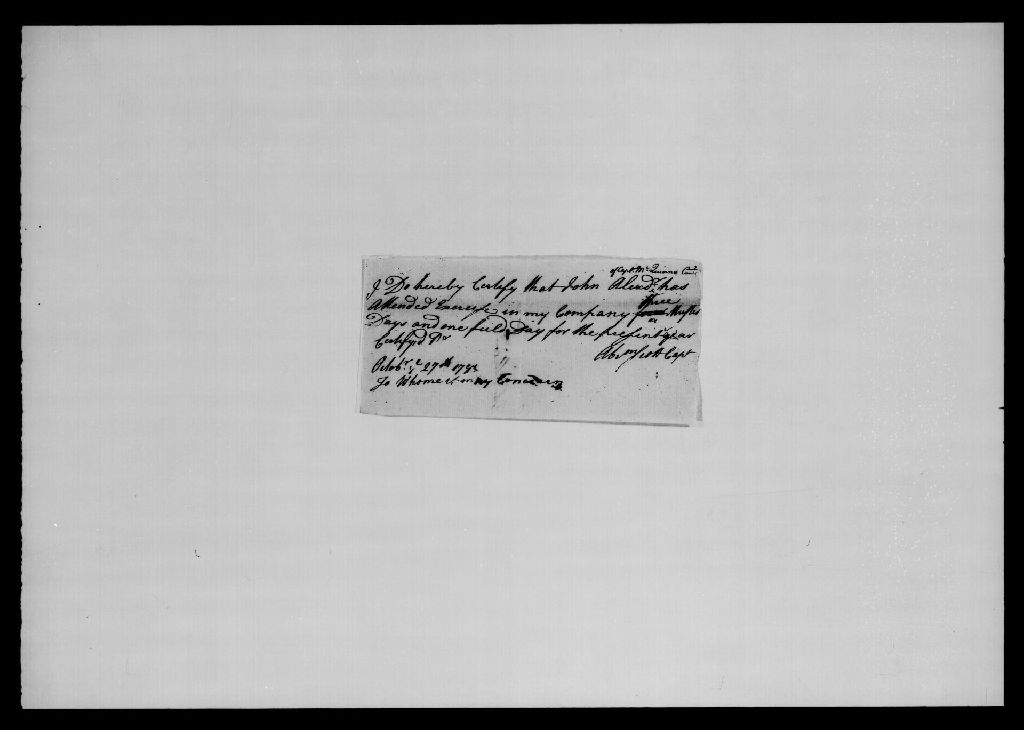 of Capt. Mc
I Do hereby Certify that John Alexdr. has
three
Attended Exercise in my Company four Muster
Days and one field Day for the present year
Certify'd Pr
Abm Scott Capt
Octobr. ye 27th
To Whome it may Concern